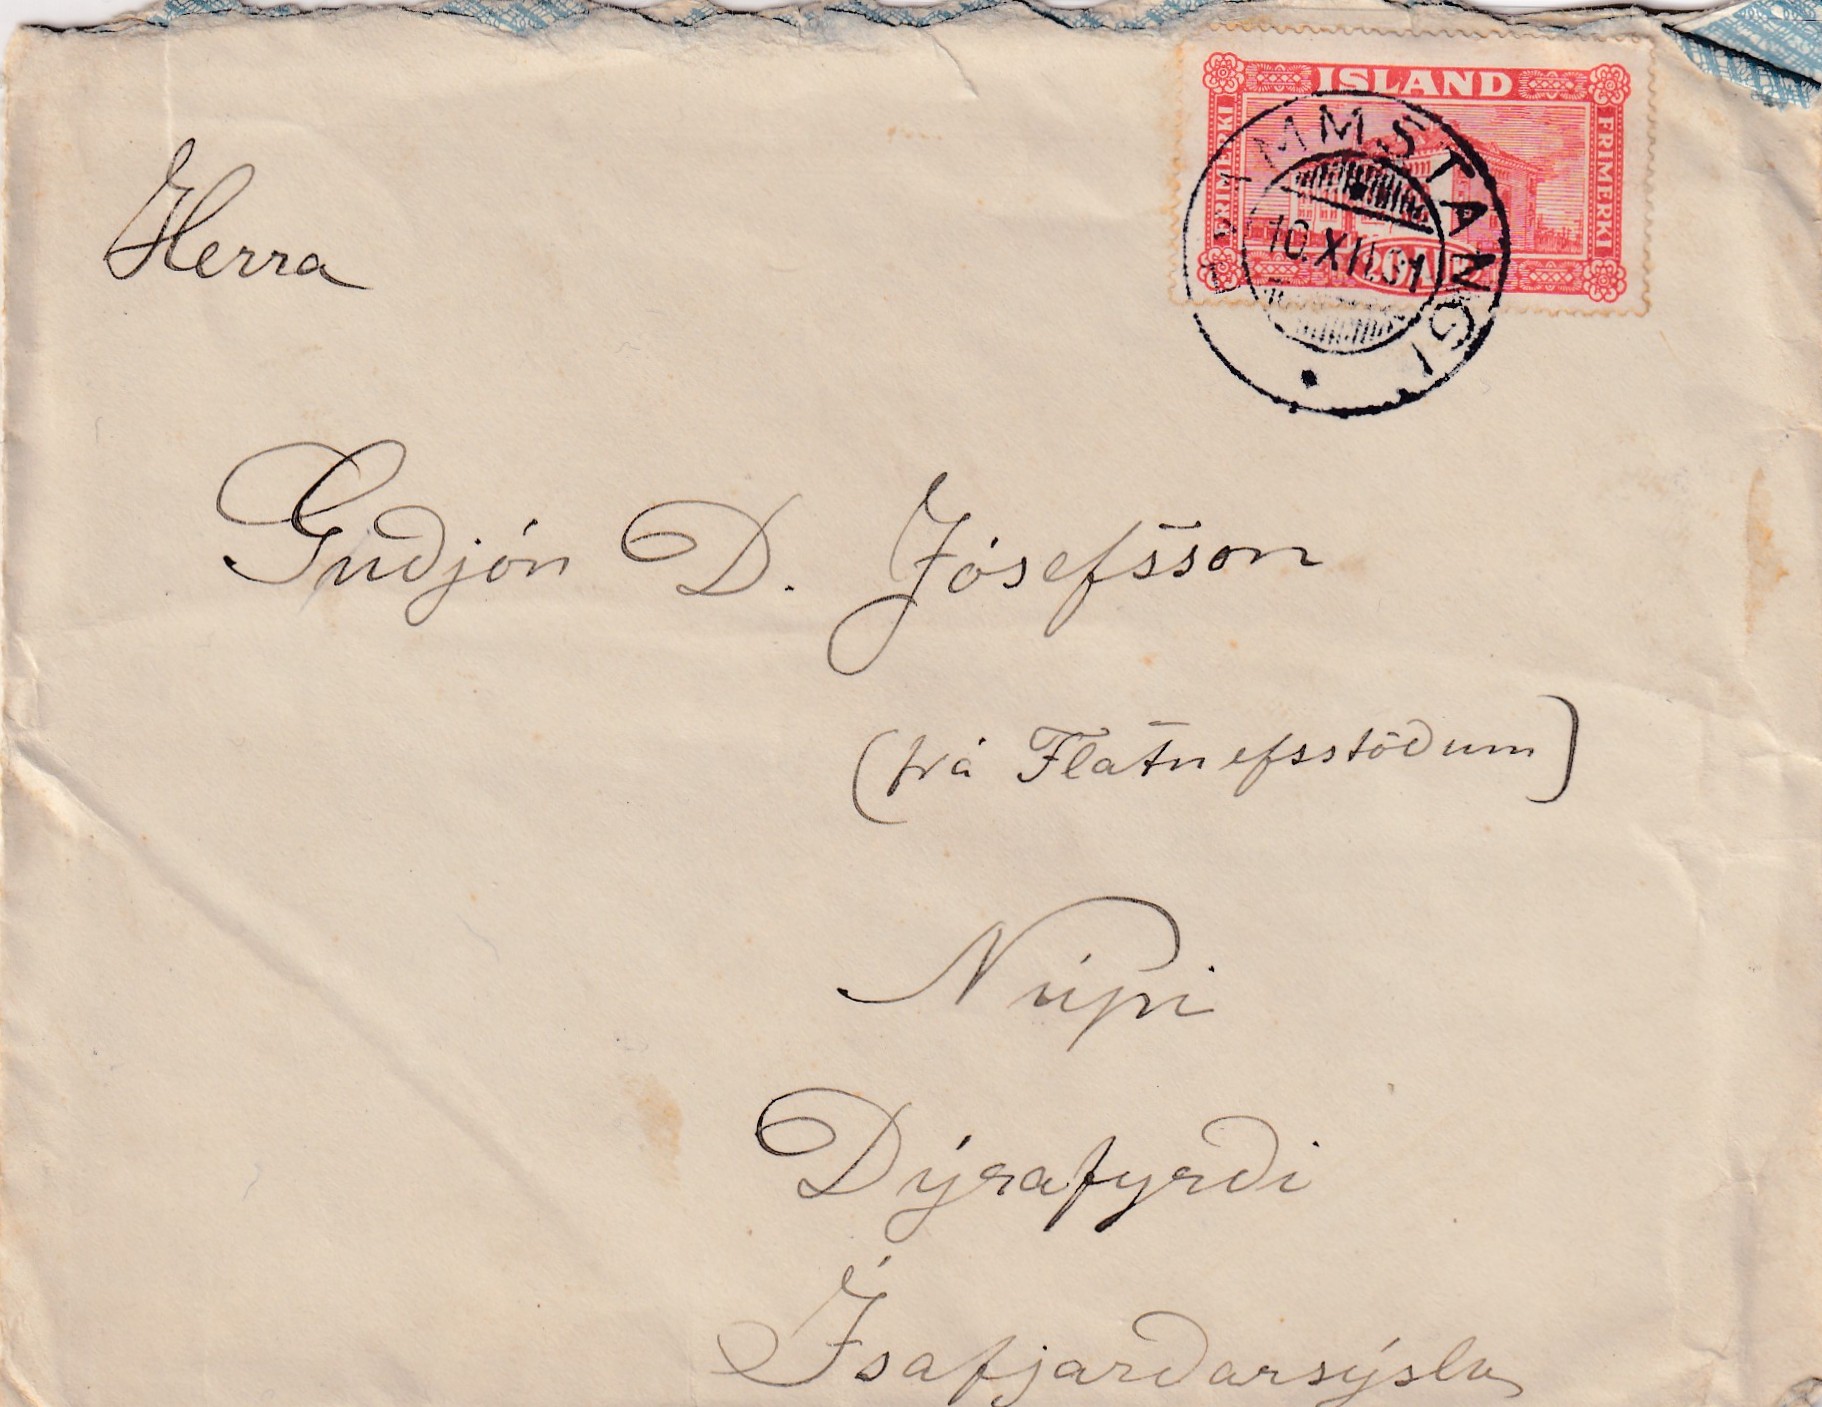 ISLAND
FRIMERKI
FRIMERKI
HVAMMSTANGI
10.XII.31
Herra
Guðjón D. Jósefsson
(frá Flatnefsstöðum)
Núpi
Dýrafyrði
Ísafjarðarsýslu